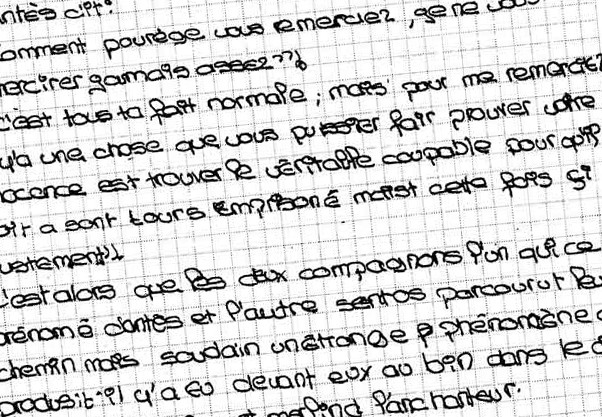 ntès dit:
omment pourège vous remerciez, ge ne vous
mercirer gamais assez??
c'est tous ta fait normale; mais pour me remerciez
y'a une chose que vous puissier fair prouver votre
ocence est trouver le véritable coupable pour qu'il
oir a sont tours emprisoné maist cette fois si
ustement!
c'est alors que les deux compagnons l'un qui ce
rénomé dantès et l'autre santos parcourut le
chemin mais soudain un étrange phénomène
produsit: il y'a eu devant eux au bin dans le
l'anchanteur.